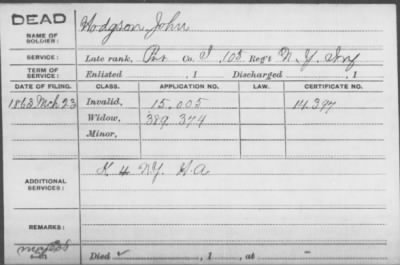 DEAD
NAME OF SOLDIER: Hodgson John
SERVICE: Late rank, Pvt Co. I, 105 Reg't N.Y. Inf
TERM OF SERVICE: Enlisted , 1 Discharged , 1
DATE OF FILING. CLASS. APPLICATION NO. LAW. CERTIFICATE NO.
1863 Mch 23 Invalid, 15.005 14.397
Widow, 389.374
Minor,
ADDITIONAL SERVICES: K 4 NY. H.A
REMARKS:
Died , 1 , at